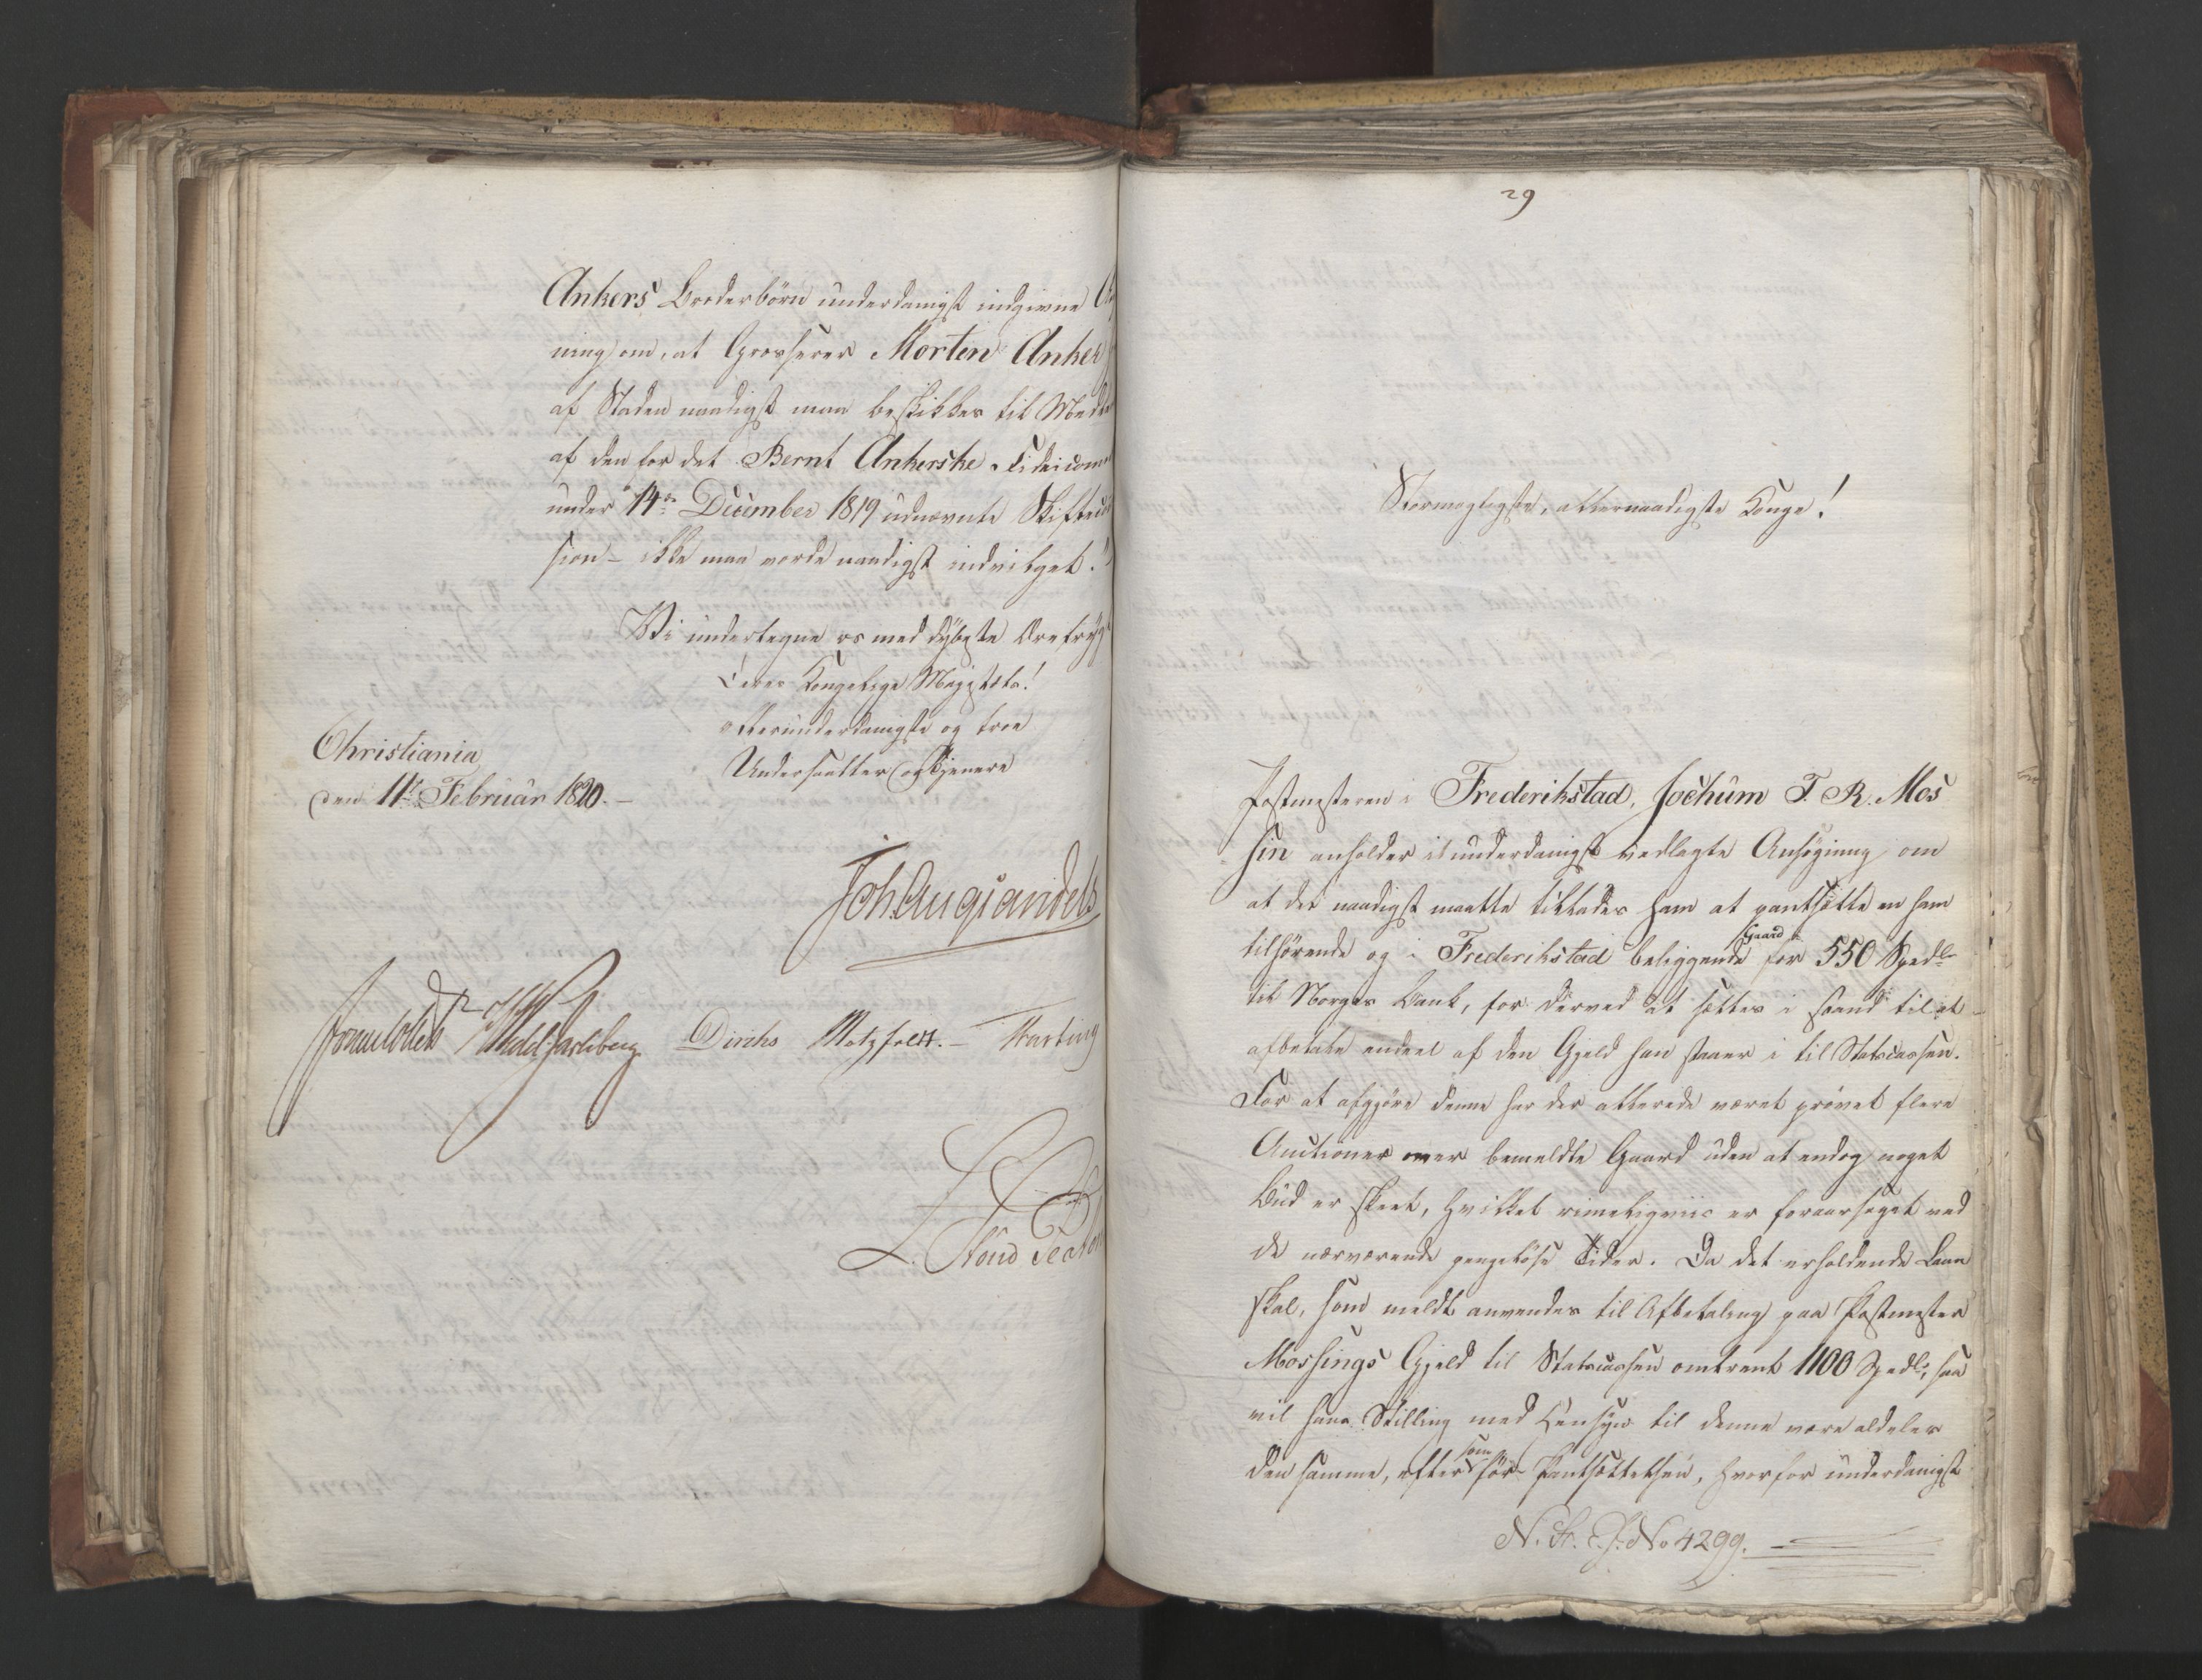 Ankers Broderbörn underdanigst indgivne An
ning om, at Grosserer Morten Anker
af Staden naadigst maa beskikkes til Medl
af den for det Bernt Ankerske Fideicom
under 14de December 1819 udnævnte Skiftecom
sion – ikke maa vorde naadigst indvilget."
Vi undertegne os med dybeste Ærefrygt
Deres Kongelige Majestæts!
allerunderdanigste og troe
Undersaatter og Tjenere
Christiania
den 11te Februar 1820. –
Joh. Aug. Sandels
Sommerhielm HWedel Jarlsberg Diriks Motzfeldt. – Krafting
29
Stormægtigste, allernaadigste Konge!
Postmesteren i Frederikstad, Jochum T. R. Mos
sin anholder i underdanigst vedlagte Ansøgning om
at det naadigst maatte tillades ham at pantsætte en ham
tilhørende og i Frederikstad beliggende Gaard for 550 Spdlr
til Norges Bank, for derved at sættes i stand til at
afbetale endeel af den Gjeld han staaer i til Statscassen.
For at afgjøre denne har der allerede været prøvet flere
Auctioner over bemeldte Gaard uden at endog noget
Bud er skeet, hvilket rimeligviis er foraarsaget ved
de nærværende pengeløse Tider. Da det erholdende Laan
skal, som meldt anvendes til Afbetaling paa Postmester
Mossings Gjeld til Statscassen omtrent 1100 Spdlr, saa
vil hans Stilling med Hensyn til denne være aldeles
den samme, efter som før Pantsættelsen, hvorfor underdanigst
N. No 4299.